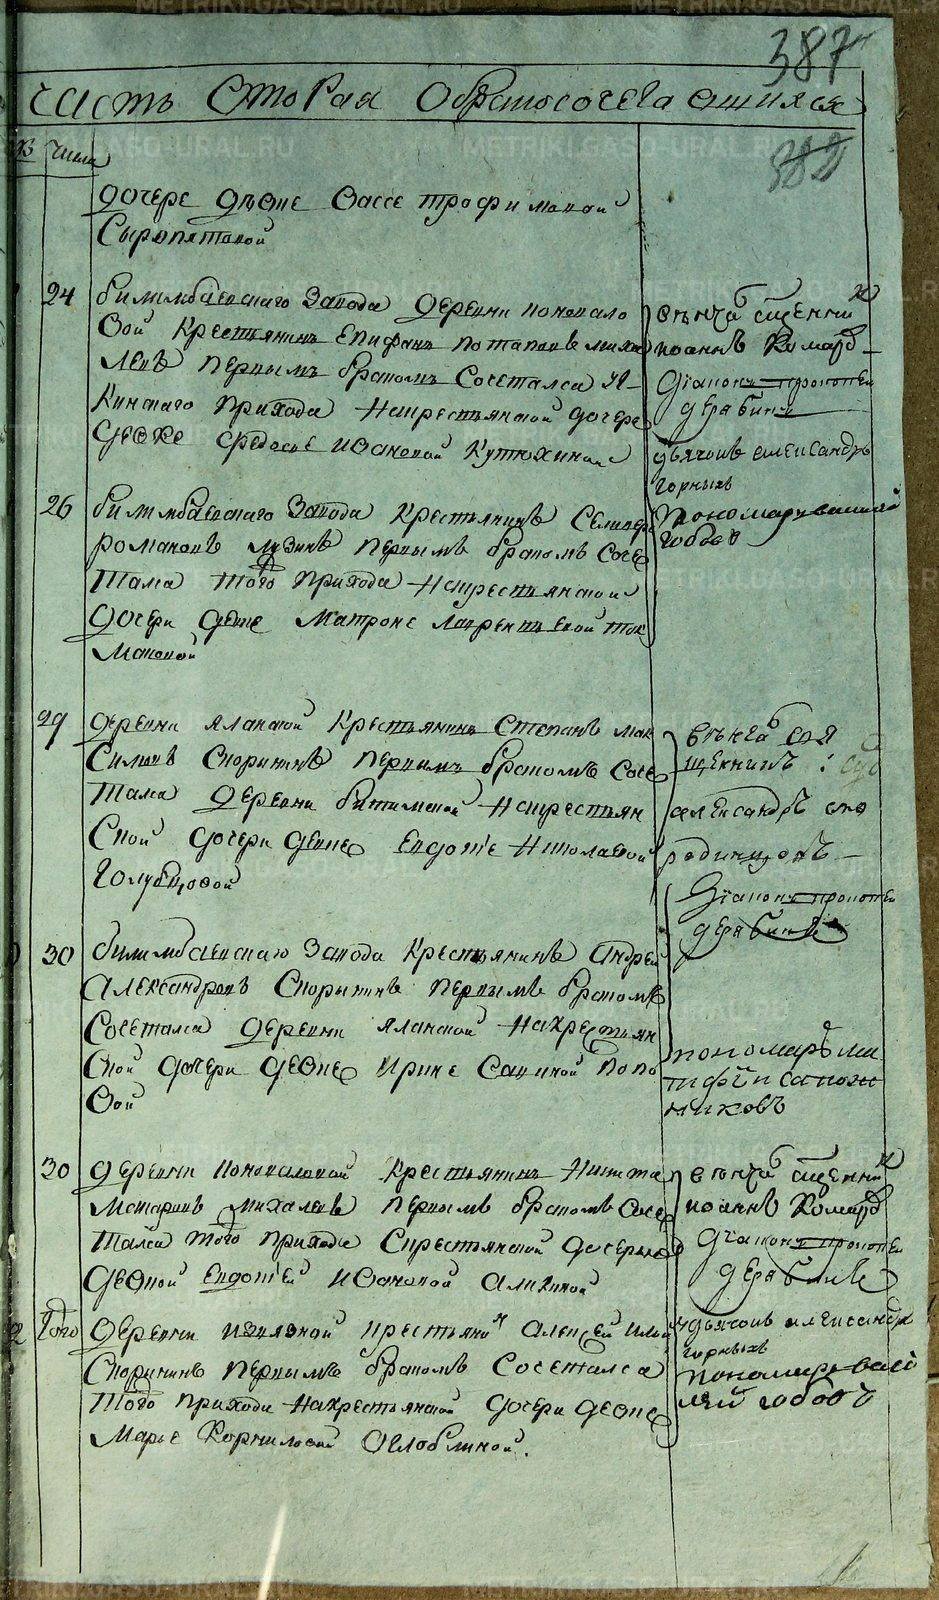 387
Часть Вторая О бракосочетавшихся
числа
382
дочере девке Вассе трофимовой
Сыропятовой
24 билимбаевскаго Завода деревни коновало
вой крестьянинъ Епифанъ потаповъ миха
левъ первымъ бракомъ Сочетался
кинскаго прихода Накрестьянской дочере
девке федосье ивановой Кутюхиной
венчалъ священникъ
иоаннъ Комаръ
Диаконъ прокопей
дерябинъ
дьячокъ александръ
горныхъ
Пономарь василей
гобовъ
26 билимбаевскаго Завода крестьянинъ Селиверс
романовъ лузинъ первымъ бракомъ Соче
тался того прихода Накрестьянской
дочери девке Матроне лаврентьевой ток
маковой
29 деревни яланской крестьянинъ Степанъ мак
Симовъ Скорынинъ первымъ бракомъ Соче
тался деревни битимской Накрестьян
Ской дочери девке Евдотье Николаевой
Голубцовой
венчалъ свя
щенникъ
александръ ско
родинцовъ
Диаконъ прокопей
дерябинъ
30 билимбаевскаго Завода крестьянинъ Андрей
Александровъ Скорынинъ первымъ бракомъ
Сочетался деревни яланской Накрестьян
Ской дочери девке Ирине Савиной попо
вой
пономарь ма
тифей сапож
никовъ
30 деревни коноваловой крестьянинъ Никита
Макаровъ михалевъ первымъ бракомъ Соче
тался того прихода Скрестьянской дочерью
девкой Евдотьей ивановой Аликиной
венчалъ священникъ
иоаннъ Комаръ
Диаконъ прокопей
дерябинъ
2 того деревни крестьянинъ алексей ильинъ
Скорынинъ первымъ бракомъ Сочетался
того прихода Накрестьянской дочери девке
Марье Корниловой Оглоблиной.
дьячокъ александръ
горныхъ
пономарь васи
лей гобовъ
METRIKI.GASO-URAL.RU